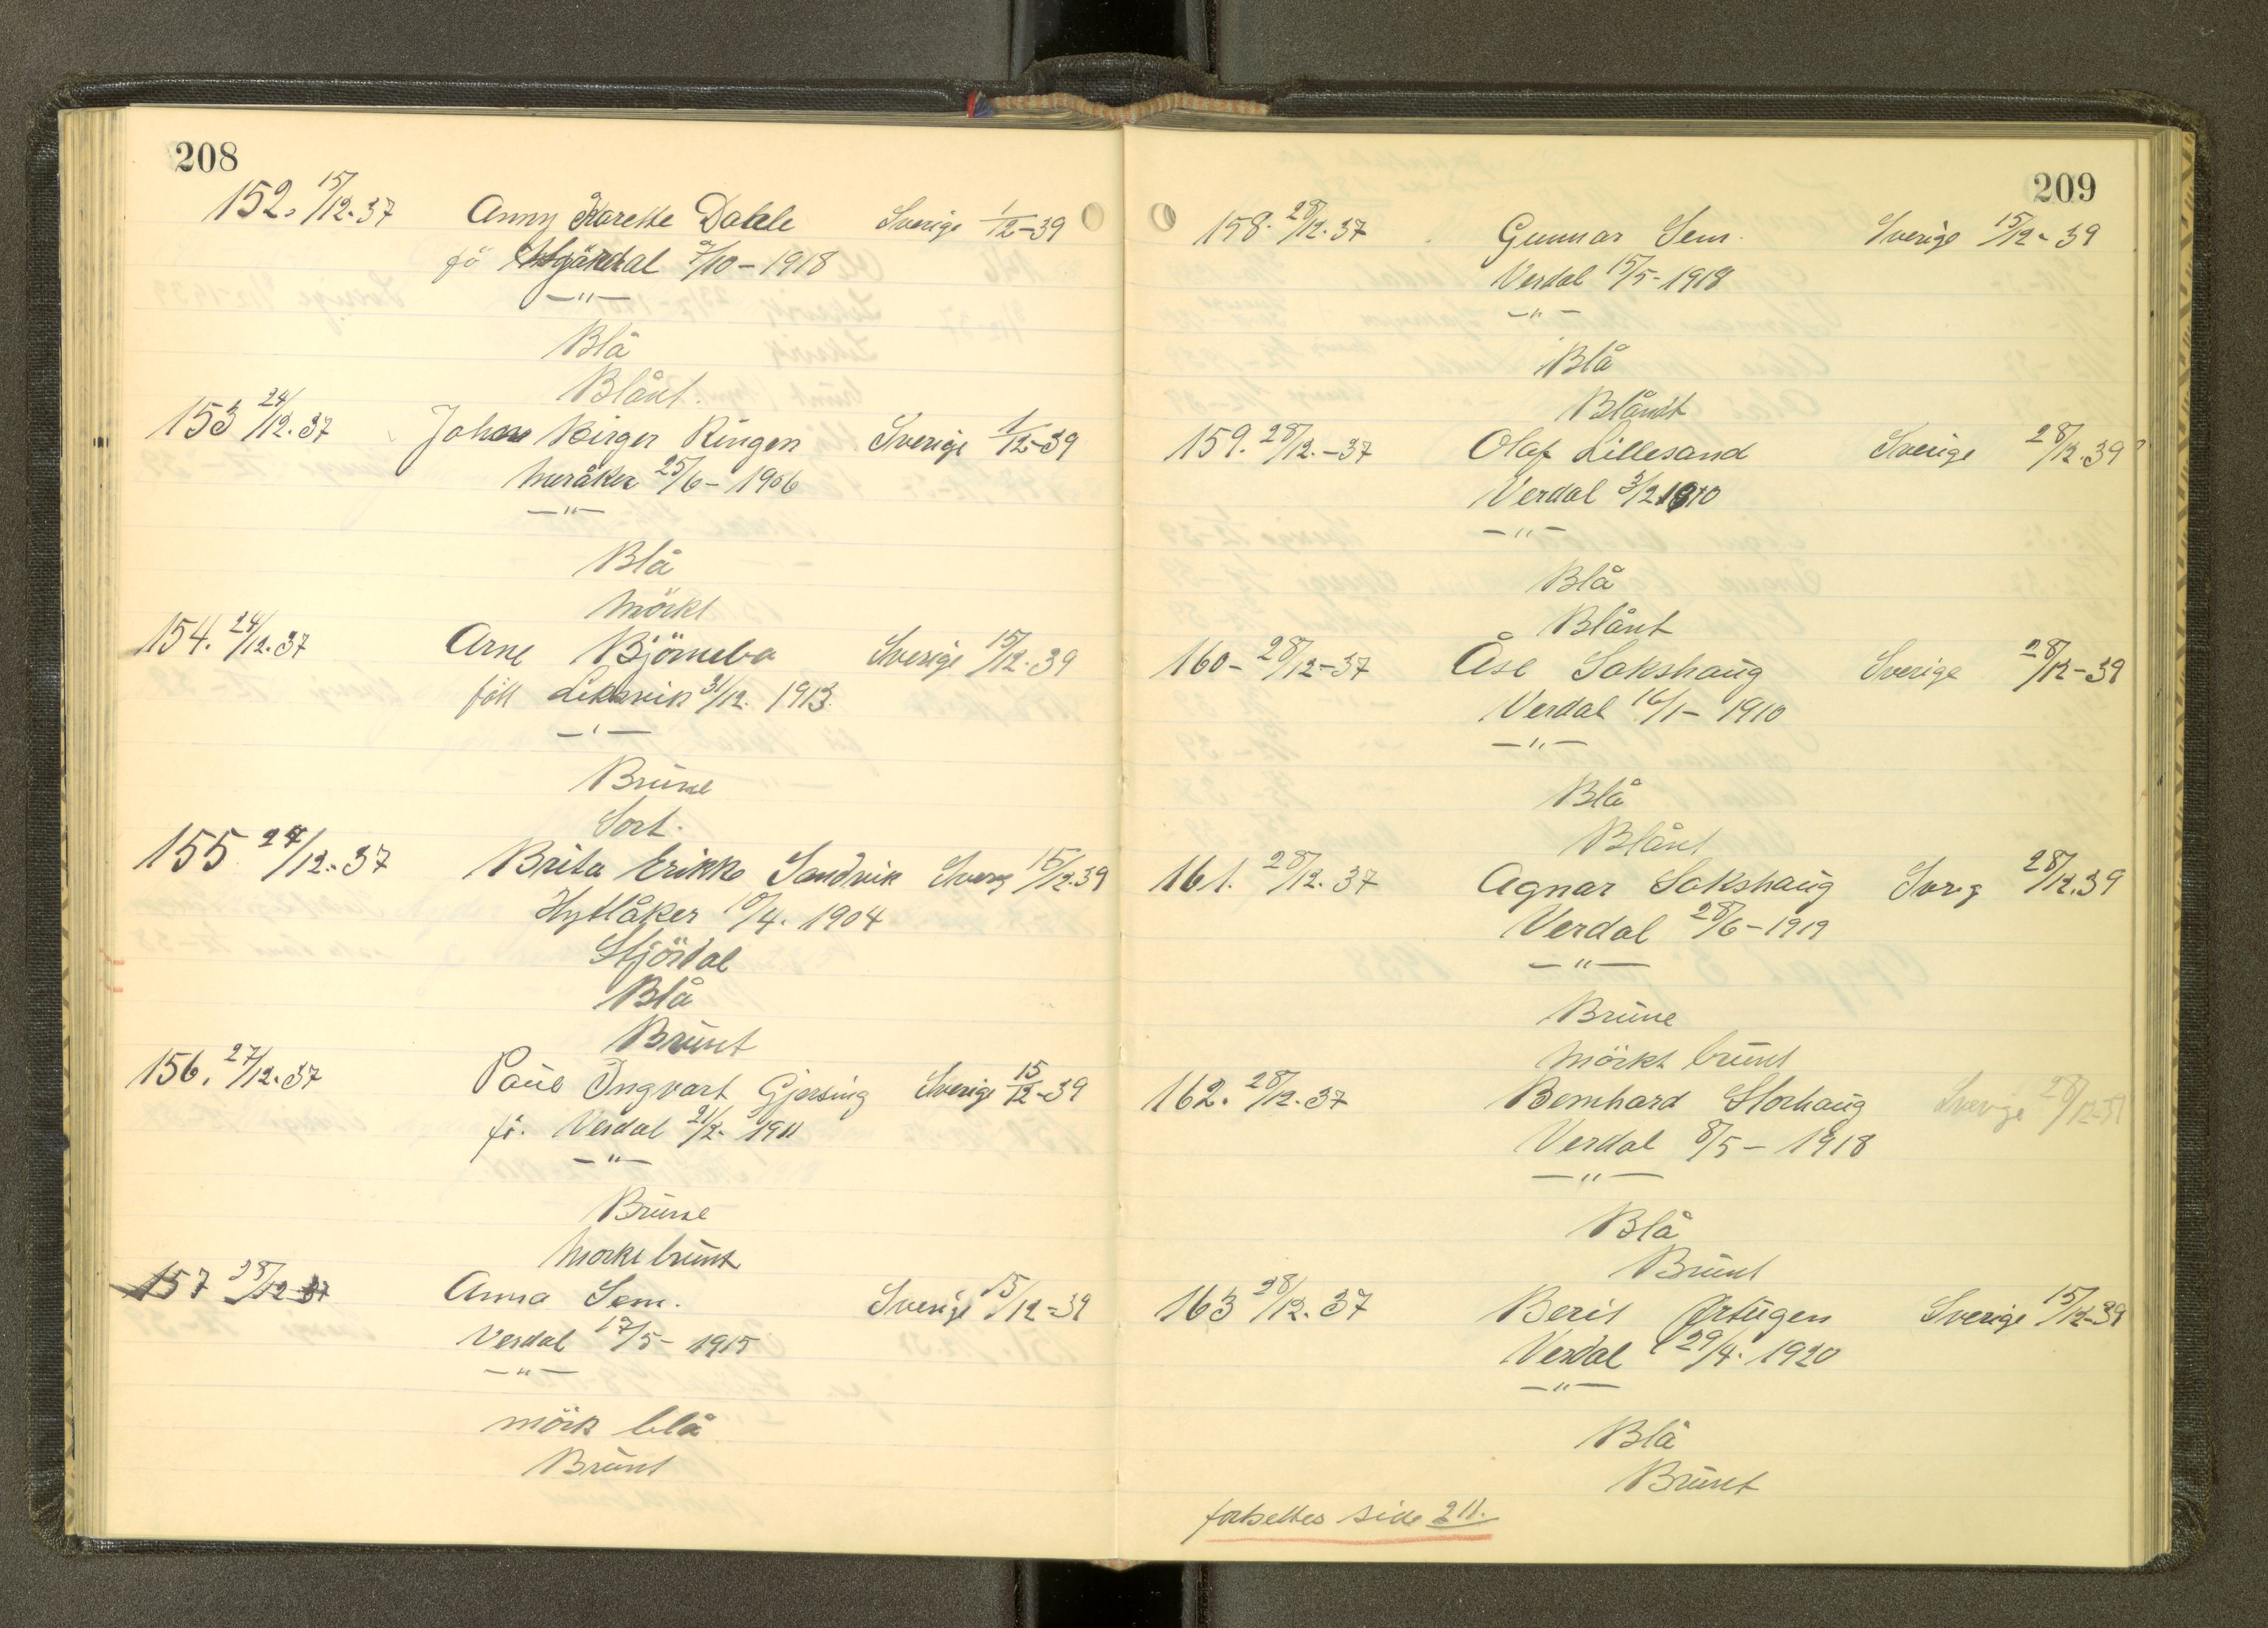 208
152. 15/12.37 Anny Karette Dahle Sverige 1/12-39
fö Stjördal 7/10-1918
-"-
Blå
Blånt.
153 24/12.37 Johan Birger Ringen Sverige 1/12-39
Meråker 25/6-1906
-"-
Blå
Mörkt
154. 24/12.37 Arne Björnebo Sverige 15/12.39
föt Leksvik 31/12. 1913.
-"-
Brune
Sort.
155 27/12.-37 Brita Erikke Sandvik Sverg 15/12.39
Hytlåker 10/4. 1904
Stjördal
Blå
Brunt
156. 27/12.37 Paul Ingvart Gjersing Sverige 15/12-39
fö. Verdal 21/2. 1911
-"-
Brune
Morkt brunt
157 28/12 37 Anna Sem. Sverige 15/12-39
Verdal 17/5-1915
-"-
mörk blå
Brunt
209
158. 28/12.37 Gunnar Sem. Sverige 15/12-39
Verdal 15/5-1918
-"-
Blå
Blåndt
159. 28/12.-37 Olaf Lillesand Sverige 28/12.39
Verdal 3/2 1910
-"-
Blå
Blånt
160- 28/12-37 Åse Sakshaug Sverige 28/12-39
Verdal 16/1-1910
-"-
Blå
Blånt
161. 28/12.37 Agnar Sakshaug Sverg 28/12.39
Verdal 28/6-1919
-"-
Brune
Mörkt brunt
162. 28/12.37 Bernhard Storhaug Sverige 28/12-39
Verdal 8/5-1918
-"-
Blå
Brunt
163 28/12.37 Berit Ørtugen Sverige 15/12-39
Verdal 29/4. 1920
-"-
Blå
Brunt
fortsettes side 211.